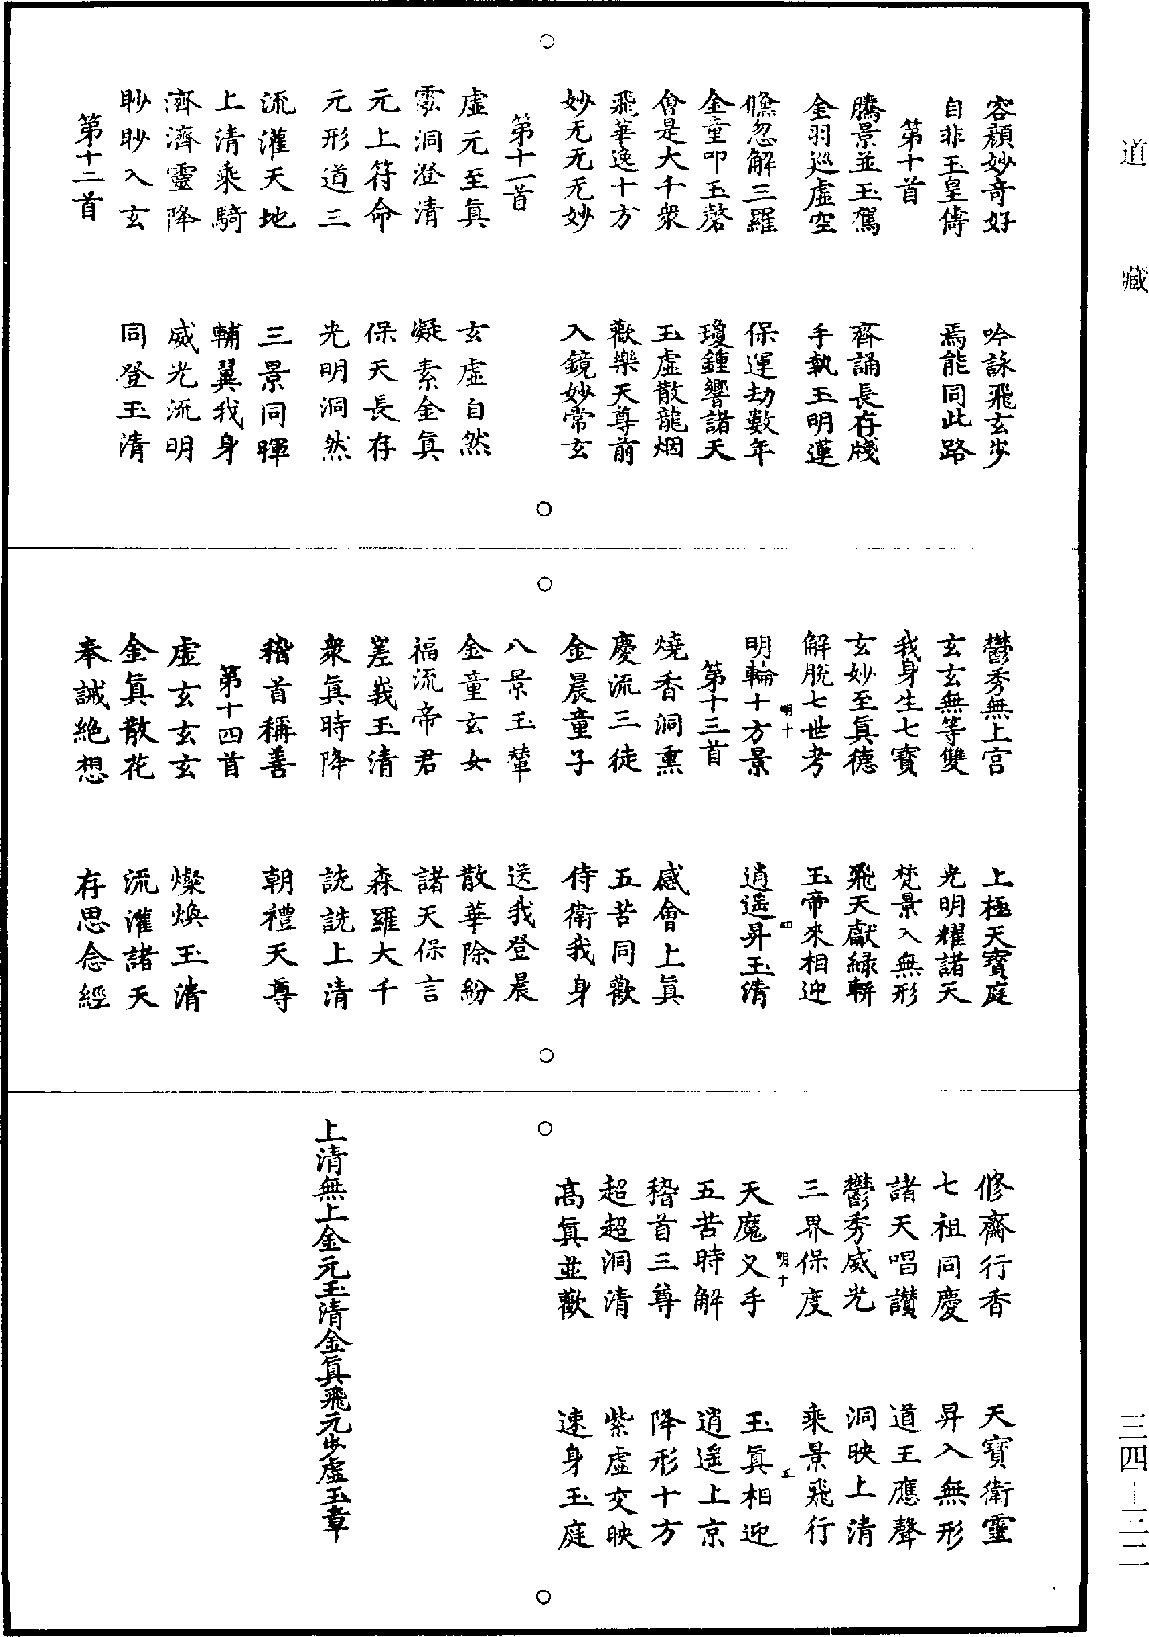 道藏
容顏妙奇好　吟詠飛玄步
自非玉皇儔　焉能同此路
第十首
騰景並玉駕　齊誦長存牋
金羽巡虛空　手執玉明蓮
儵忽解三羅　保運劫數年
金童叩玉磬　瓊鍾響諸天
會是大千衆　玉虛散龍烟
飛華逸十方　歡樂天尊前
妙无无无妙　入鏡妙常玄
第十一首
虛元至眞　玄虛自然
雲洞澄清　凝素金眞
元上符命　保天長存
元形道三　光明洞然
流灌天地　三景同暉
上清乘騎　輔翼我身
濟濟靈降　威光流明
眇眇入玄　同登玉清
第十二首
鬱秀無上宮　上極天寶庭
玄玄無等雙　光明耀諸天
我身生七寶　梵景入無形
玄妙至眞德　飛天獻綠輧
解脫七世考　玉帝來相迎
明十　四
明輪十方景　逍遥昇玉清
第十三首
燒香洞熏　感會上眞
慶流三徒　五苦同歡
金晨童子　侍衛我身
八景玉輦　送我登晨
金童玄女　散華除紛
福流帝君　諸天保言
嵳峩玉清　森羅大千
衆眞時降　詵詵上清
稽首稱善　朝禮天尊
第十四首
虛玄玄玄　燦煥玉清
金眞散花　流灌諸天
奉誠絶想　存思念經
修齋行香　天寶衛靈
七祖同慶　昇入無形
諸天唱讚　道王應聲
鬱秀威光　洞映上清
三界保度　乘景飛行
明十　五
天魔叉手　玉眞相迎
五苦時解　逍遥上京
稽首三尊　降形十方
超超洞清　紫虛交映
高眞並歡　速身玉庭
上清無上金元玉清金眞飛元步虛玉章
三四—三二